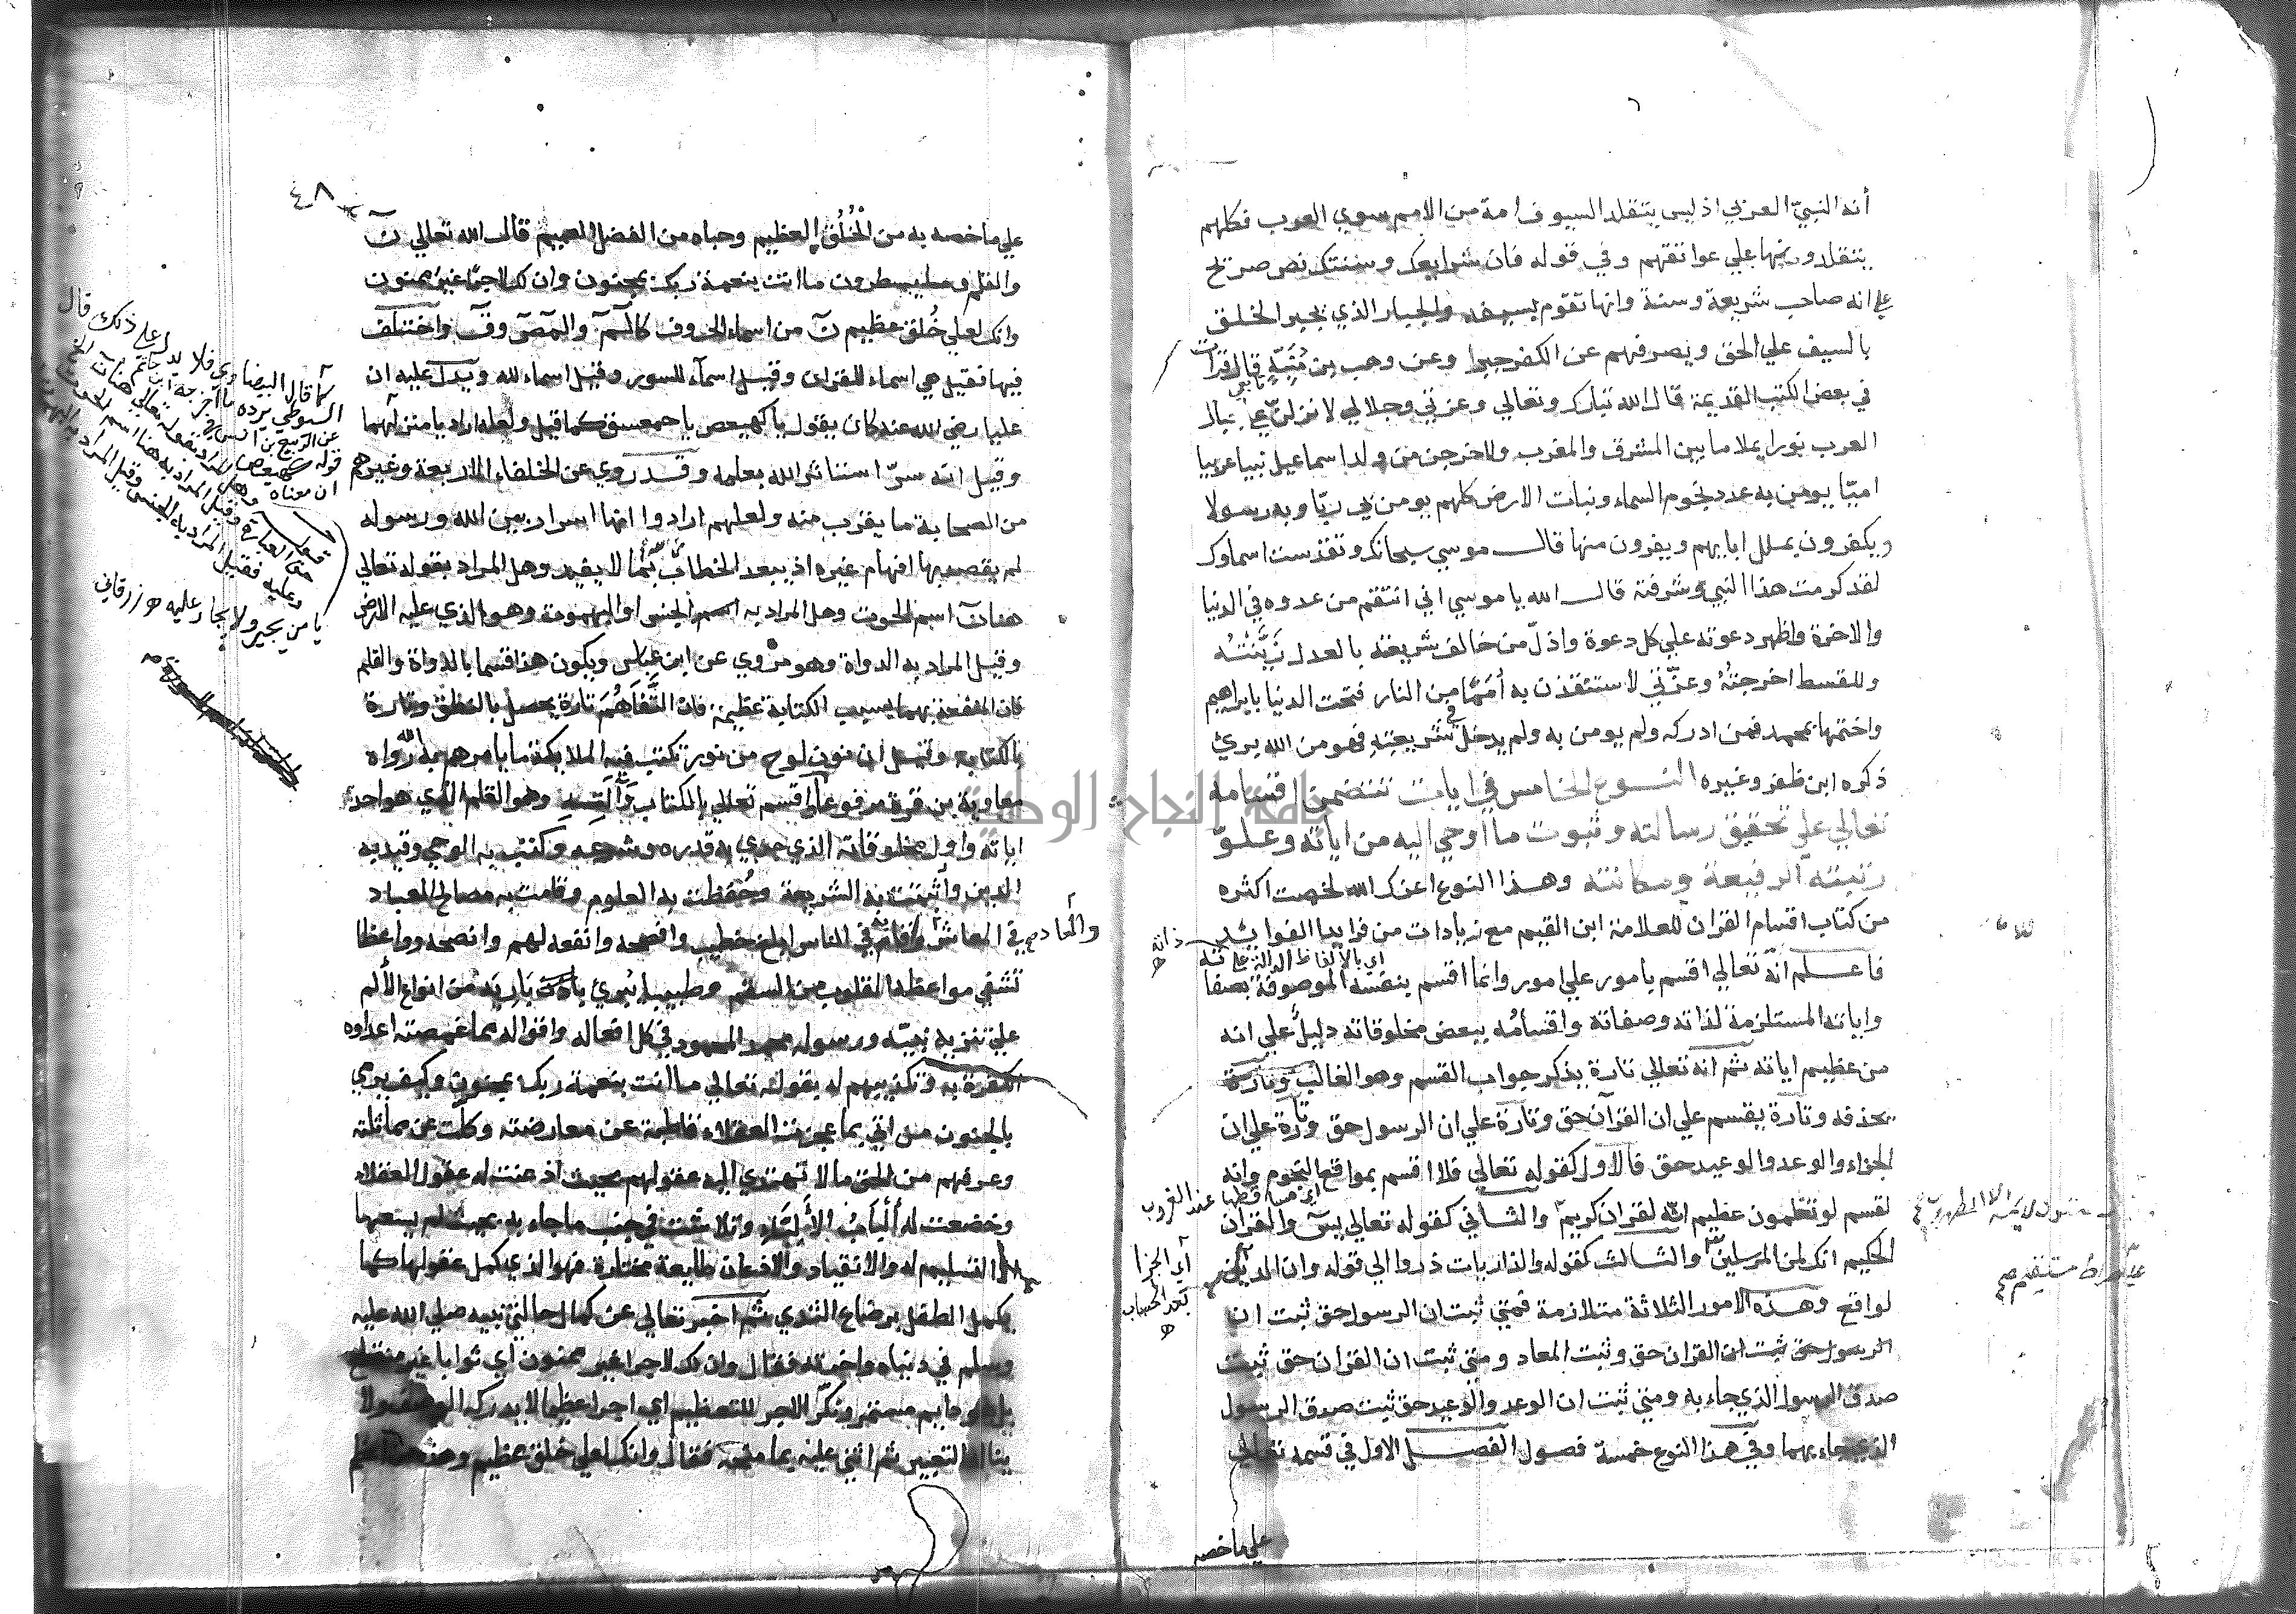 أنه النبيّ العربي اذ ليس يتقلد السيوف امة من الامم سوي العرب فكلهم
يتقلدونها علي عواتقهم وفي قوله فان شرايعك وسنتك نص صريح
علي انه صاحب شريعة وسنة وانها تقوم بسيفه والجبار الذي يجبر الخلق
بالسيف علي الحق ويصرفهم عن الكفر جبرا وعن وهب بن مُنَبِّهٍ قال قرات
تابعي
في بعض الكتب القديمة قال الله تبارك وتعالي وعزتي وجلالي لانزلن علي جبال
العرب نورا يملا ما بين المشرق والمغرب ولاخرجن من ولد اسماعيل نبيا عربيا
اميّا يومن به عدد نجوم السماء ونبات الارض كلهم يومن بي ربّا وبه رسولا
ويكفرون بملل ابايهم ويفرون منها قال موسي سبحانك وتقدست اسماوك
لقد كرمت هذا النبي وشرفته قال الله يا موسي اني انتقم من عدوه في الدنيا
والاخرة واظهر دعوته علي كل دعوة واذلّ من خالف شريعته بالعدل زَيَّنْتُه
وللقسط اخرجتُهُ وعزّتي لاستنقذن به أممًا من النار فتحت الدنيا بابراهيم
واختمها بمحمد فمن ادركه ولم يومن به ولم يدخل في شريعته فهو من الله بريئ
ذكره ابن ظفر وغيره النــوع الخامس في ايات تتضمن اقسامه
تعالي علي تحقيق رسالته وثبوت ما أوحي اليه من اياته وعلوّ
رتبته الرفيعة ومكانته وهذا النوع اعزك الله لخصت اكثره
من كتاب اقسام القران للعلامة ابن القيم مع زيادات من فرايد الفوايد
اي بالالفاظ الدالة علي ذاته
فاعلم انه تعالي اقسم بامور علي امور وانما اقسم بنفسه الموصوفة بصفاته
واياته المستلزمة لذاته وصفاته واقسامُه ببعض مخلوقاته دليلٌ علي انه
من عظيم اياته ثم انه تعالي تارة يذكر جواب القسم وهو الغالب وتارة
يحذفه وتارة يقسم علي ان القرآن حق وتارة علي ان الرسول حق وتارة علي ان
الجزاء والوعد والوعيد حق فالاول كقوله تعالي فلا اقسم بمواقع النجوم وانه
اي مساقطها عند الغروب
لقسم لو تعلمون عظيم انه لقران كريم والثاني كقوله تعالي يس والقران
الحكيم انك لمن المرسلين والثالث كقوله والذاريات ذروا الي قوله وان الدين
لواقع وهذه الامور الثلاثة متلازمة فمتي ثبت ان الرسول حق ثبت ان
الرسول حق ثبت ان القران حق وثبت المعاد ومتي ثبت ان القران حق ثبت
صدق الرسول الذي جاء به ومتي ثبت ان الوعد والوعيد حق ثبت صدق الرسول
الذي جاء بهما وفي هذا النوع خمسة فصول الفصل الاول في قسمه تعالي
علي ما خصه
لا يمسه الا المطهرون
علي صراط مستقيم صح
أي الجزا
بعد الحساب
٤٨
علي ما خصه به من الخُلُق العظيم وحباه من الفضل العميم قال الله تعالي ن
والقلم وما يسطرون ما انت بنعمة ربك بمجنون وان لك لاجرا غير ممنون
وانك لعلي خُلق عظيم ن من اسماء الحروف كالم والمص وق واختلف
فيها فقيل هي اسماء للقران وقيل اسماء للسور وقيل اسماء لله ويدل عليه ان
عليا رضي الله عنه كان يقول يا كهيعص يا حمعسق كما قيل ولعله اراد يا منزلهما
وقيل انه سرّ استاثر الله بعلمه وقد روي عن الخلفاء الاربعة وغيرهم
من الصحابة ما يقرب منه ولعلهم ارادوا انها اسرار بين الله ورسوله
لم يقصد بها افهام غيره اذ يبعد الخطاب بما لا يفيد وهل المراد بقوله تعالي
هنا ن اسم الحوت وهل المراد به اسم الجنس او البهموت وهو الذي عليه الارض
وقيل المراد به الدواة وهو مروي عن ابن عباس ويكون هذا قسما بالدواة والقلم
فان المنفعة بهما بسبب الكتابة عظيمة فان التَّفَاهُمَ تارة يحصل بالنطق وتارة
بالكتابة وقيل ان نون لوح من نور تكتب فيه الملايكة ما يامرهم به الله رواه
معاوية بن قرة مرفوعا اقسم تعالي بالكتاب وآلته وهو القلم الذي هو احد
اياته واول مخلوقاته الذي جري به قدره وشرعه وكتب به الوحي وقيد به
الدين وأثبتت به الشريعة وحُفظت به العلوم وقامت به مصالح العباد
في المعاش والمعاد وقام في الناس ابلغ خطيب وافصحه وانفعه لهم وانصحه وواعظا
تشفي مواعظه القلوب من السقم وطبيبا يُبرئ باذن باريه من انواع الألم
علي تنزيه نبيّه ورسوله محمد المحمود في كل افعاله واقواله مما غمصته اعداوه
الكفرة به وتكذيبهم له بقوله تعالي ما انت بنعمة ربك بمجنون وكيف يرمي
بالجنون من اتي بما عجزت العقلاء قاطبة عن معارضته وكلّت عن مماثلته
وعرفهم من الحق ما لا تهتدي اليه عقولهم بحيث اذعنت له عقول العقلاء
وخضعت له ألبابُ الألِبّاء وتلاشت في جنب ما جاء به بحيث لم يسعها
الا التسليم له والانقياد والاذعان طايعة مختارة فهو الذي كمل عقولها كما
يكمل الطفل برضاع الثدي ثم اخبر تعالي عن كمال حالتي نبيه صلي الله عليه
وسلم في دنياه واخرته فقال وان لك لاجرا غير ممنون اي ثوابا غير منقطع
بل هو دايم مستمر ونكّر الاجر للتعظيم اي اجرا عظيما لا يدركه الوصف ولا
يناله التعبير ثم اثني عليه بما منحه فقال وانك لعلي خلق عظيم وهذه
كما قال البيضاوي فلا يدل علي ذلك قال
السيوطي يرده ما اخرجه ابن ابي حاتم
عن الربيع بن انس في
قوله كهيعص
ان معناه
يا من يجير ولا يجار عليه هـ زرقاني
جامعة النجاح الوطنية